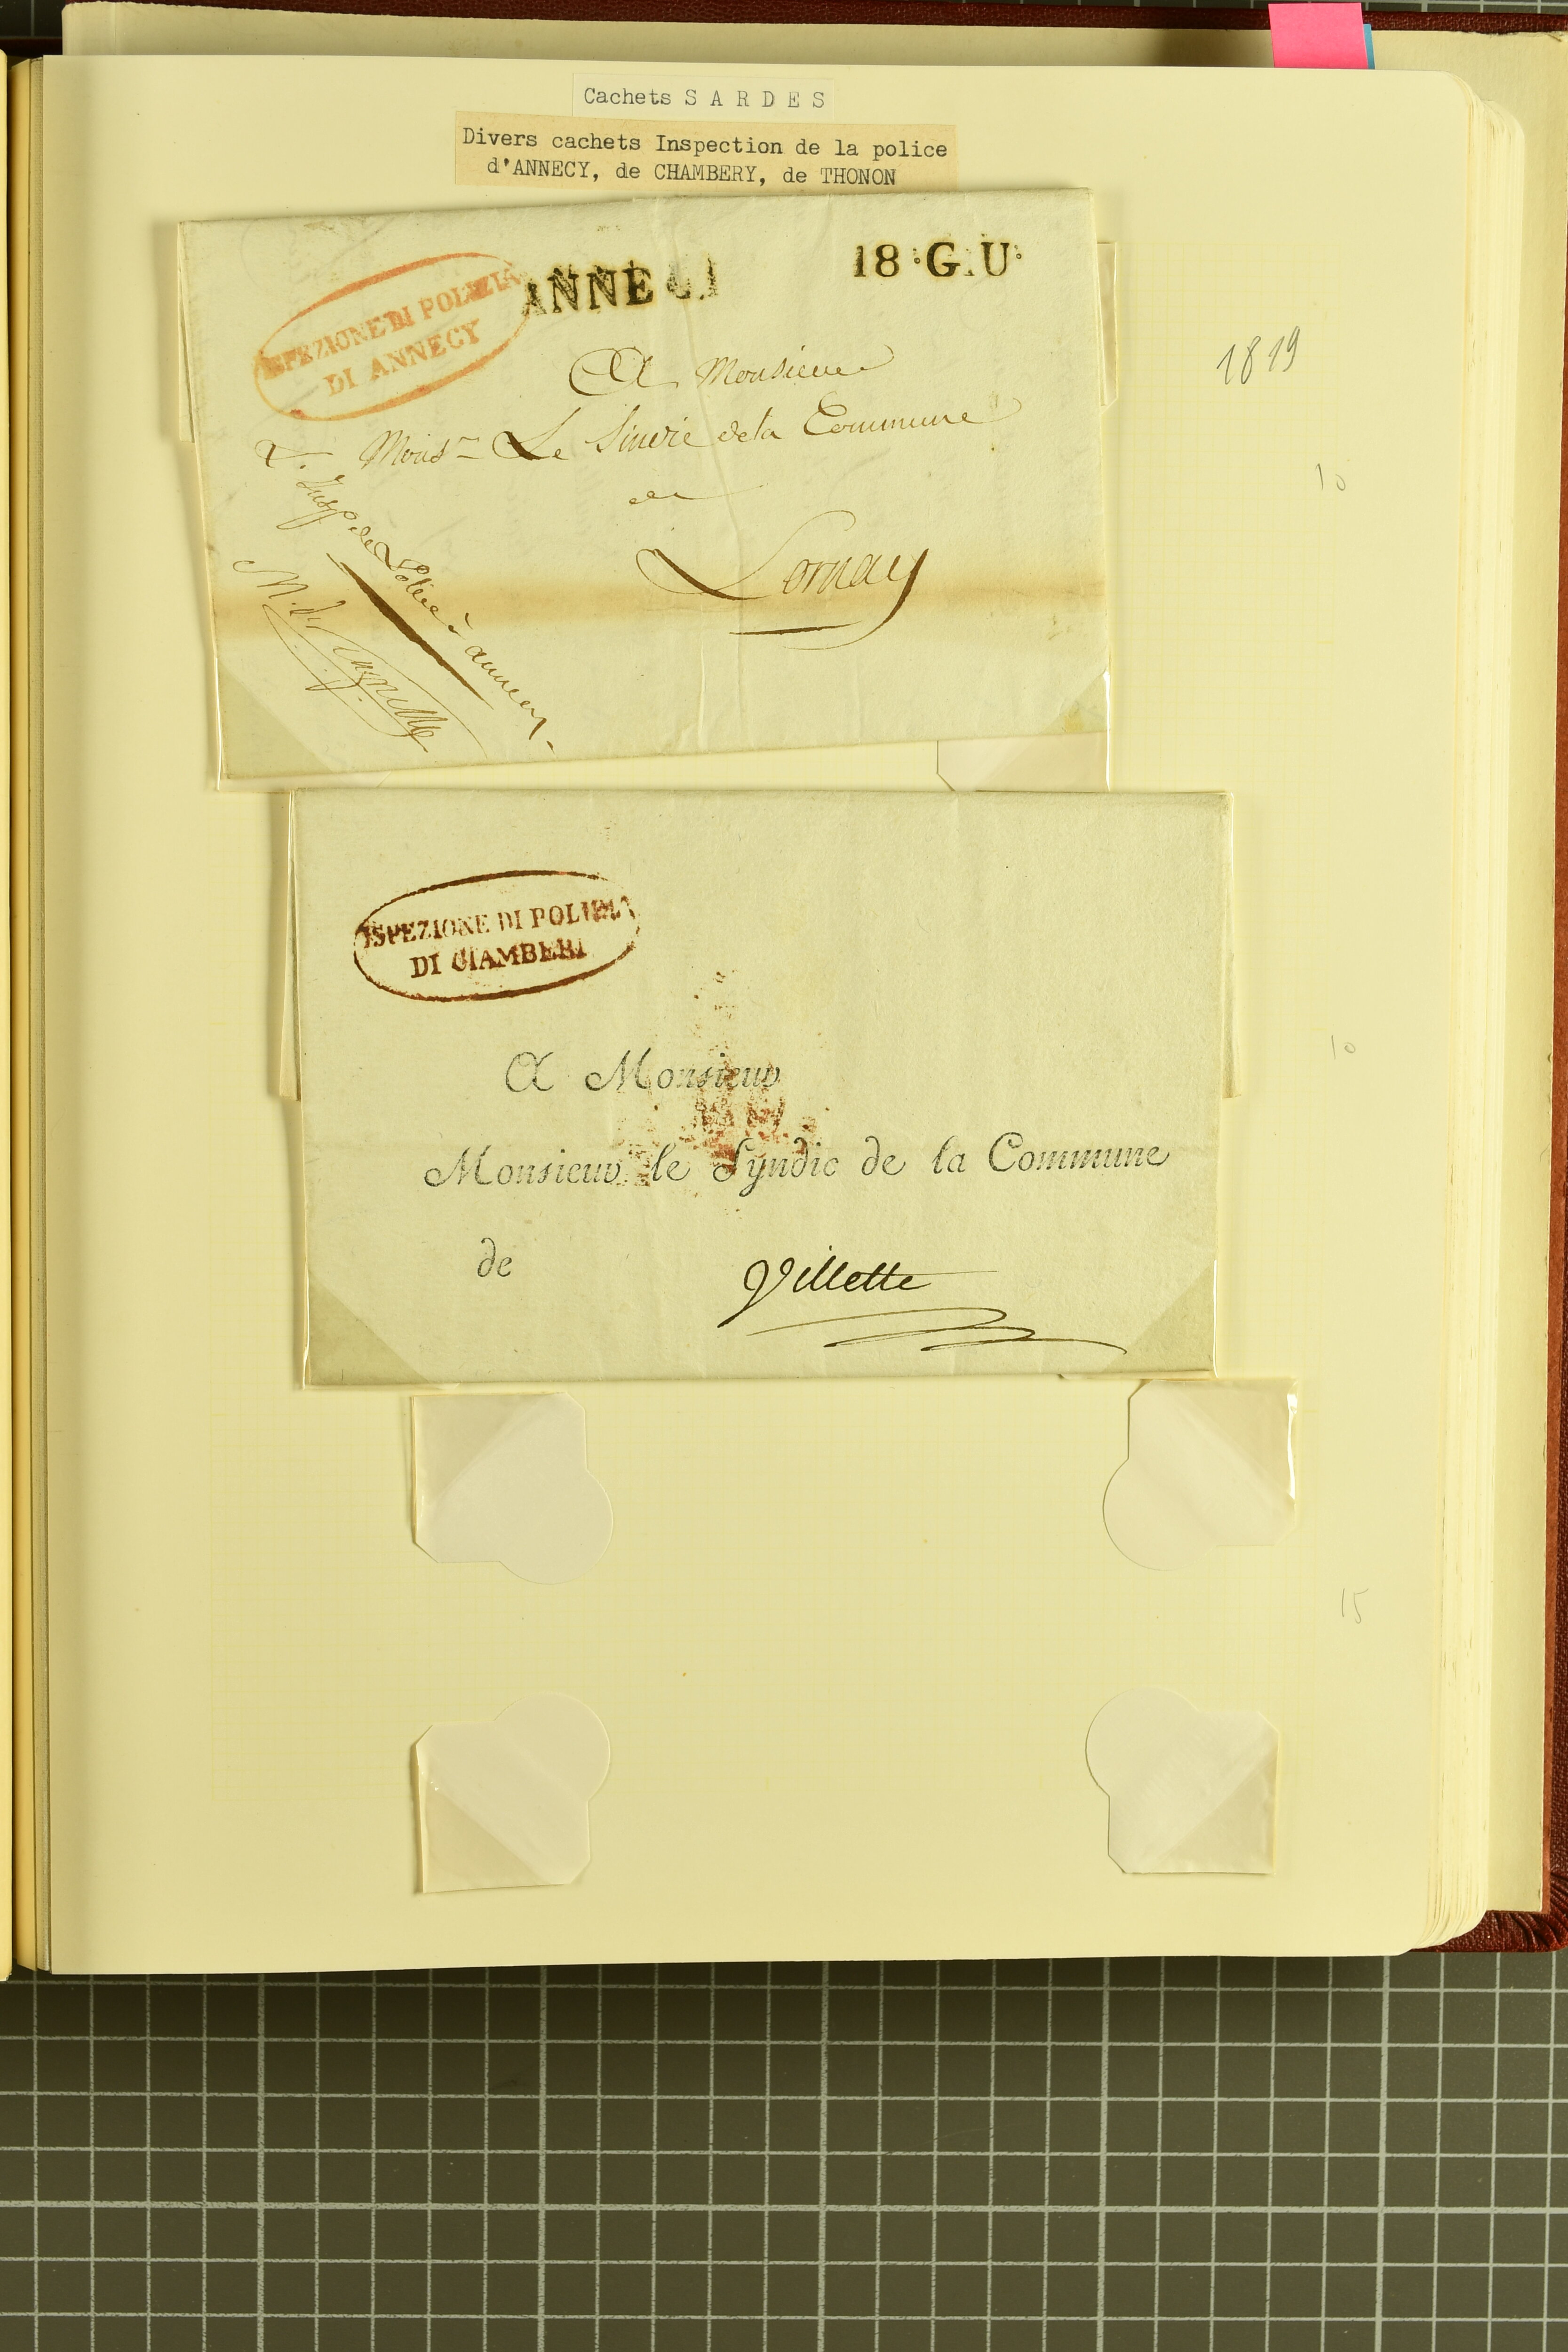 Cachets S A R D E S
Divers cachets Inspection de la police
d'ANNECY, de CHAMBERY, de THONON
ISPEZIONE DI POLIZIA
DI ANNECY
ANNECI
18 · G. U ·
1819
A Monsieur
Monsr Le Sindic de la Commune
de
Lornay
L. Insp. de Police à annecy.
10
ISPEZIONE DI POLIZIA
DI CIAMBERI
10
A Monsieur
Monsieur le Syndic de la Commune
de Villette
15